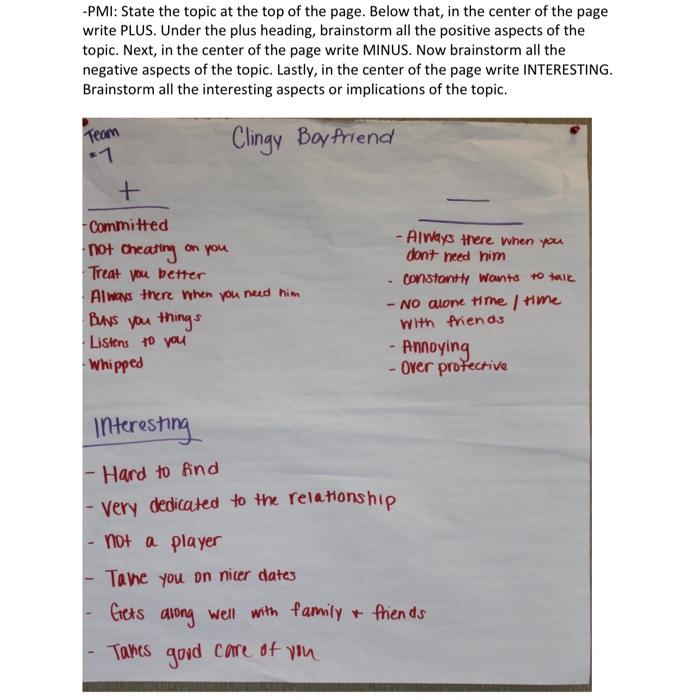 -PMI: State the topic at the top of the page. Below that, in the center of the page
write PLUS. Under the plus heading, brainstorm all the positive aspects of the
topic. Next, in the center of the page write MINUS. Now brainstorm all the
negative aspects of the topic. Lastly, in the center of the page write INTERESTING.
Brainstorm all the interesting aspects or implications of the topic.
Team
#7
Clingy Boyfriend
+
- Committed
- not cheating on you
- Treat you better
- Always there when you need him
- Buys you things
- Listens to you
- Whipped
—
- Always there when you
don't need him
- constantly wants to talk
- No alone time / time
with friends
- Annoying
- Over protective
Interesting
- Hard to find
- very dedicated to the relationship
- not a player
- Take you on nicer dates
- Gets along well with family + friends
- Takes good care of you